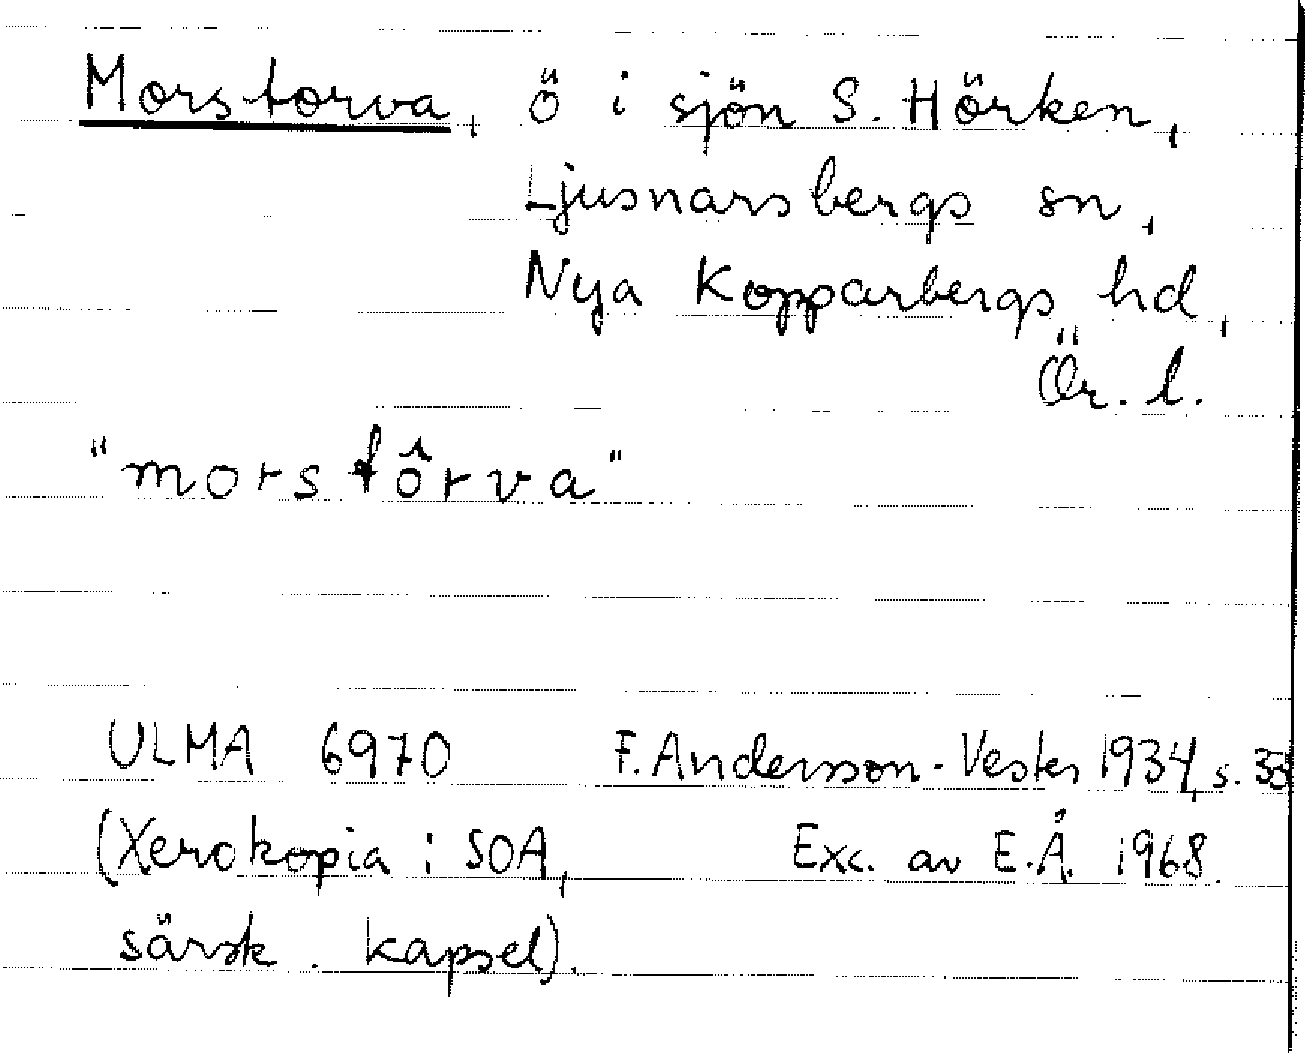 Morstorva, ö i sjön S. Hörken,
Ljusnarsbergs sn,
Nya Kopparbergs hd,
Ör. l.
"morstôrva"
ULMA 6970 F. Andersson-Vester 1934, s. 33
(Xerokopia i SOA, Exc. av E.Å. 1968.
särsk. kapsel).